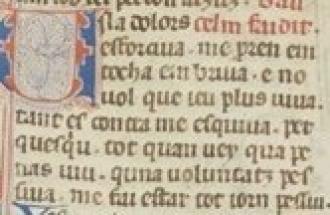 sta dolors celm faudit.
esforaua. me pren em
tocha em braua. e no
uol que ieu plus uiua.
tant es contra me esquiua. per
quesqu. tot quan uey qua pe
nas uiu. quna uoluntatz pes
siua. me fai estar tot iorn pessiu.